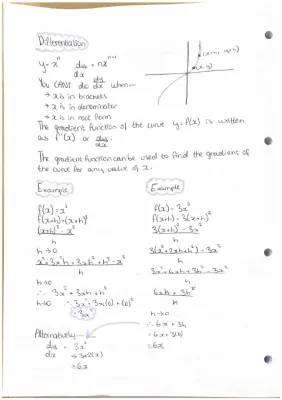 Differentiation
y = xⁿ dy/dx = nxⁿ⁻¹
(x, y)
You CANT do dy/dx when...
→ x is in brackets
→ x is in denominator
→ x is in root form
The gradient function of the curve y=f(x) is written
as f'(x) or dy/dx
The gradient function can be used to find the gradient of
the curve for any value of x.
Example
f(x) = x³
f(x+h) = (x+h)³
(x+h)³ - x³
h
h→0
x³+3x²h+3xh²+h³-x³
h
h→0
∴ 3x²+3xh+h²
h→0 ∴ 3x²+3x(0)+(0)²
= 3x²
Alternatively
dy/dx = 3x²
→ 3×2(x)
= 6x
Example
f(x) = 3x²
f(x+h) = 3(x+h)²
3(x+h)² - 3x²
h
3(x²+2xh+h²) - 3x²
h
3x²+6xh+3h²-3x²
h
6xh+3h²
h
h→0
∴ 6x+3h
= 6x+3(0)
= 6x